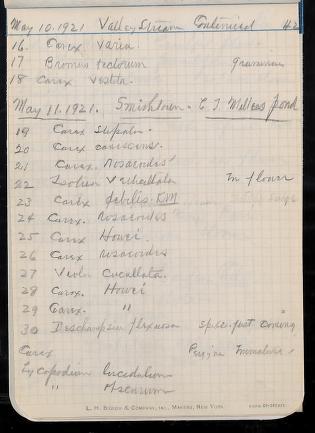 May 10. 1921 Valley Stream Continued #2
16. Carex varia.
17 Bromus tectorum
18 Carex vestita.
May 11. 1921. Smithtown. C. J. Millers Pond
19 Carex stipata.
20 Carex canescens.
21 Carex. rosaeoides
22 Isotria Verticillata In flower
23 Carex debilis RM
24 Carex. rosaeoides
25 Carex Howei.
26 Carex rosaeoides
27 Viola Cucullata.
28 Carex. Howei
29 Carex. "
30 Deschampsia flexuosa spike just coming
Carex
Lycopodium lucidulum
"
L. H. Biglow & Company, Inc., Makers, New York.